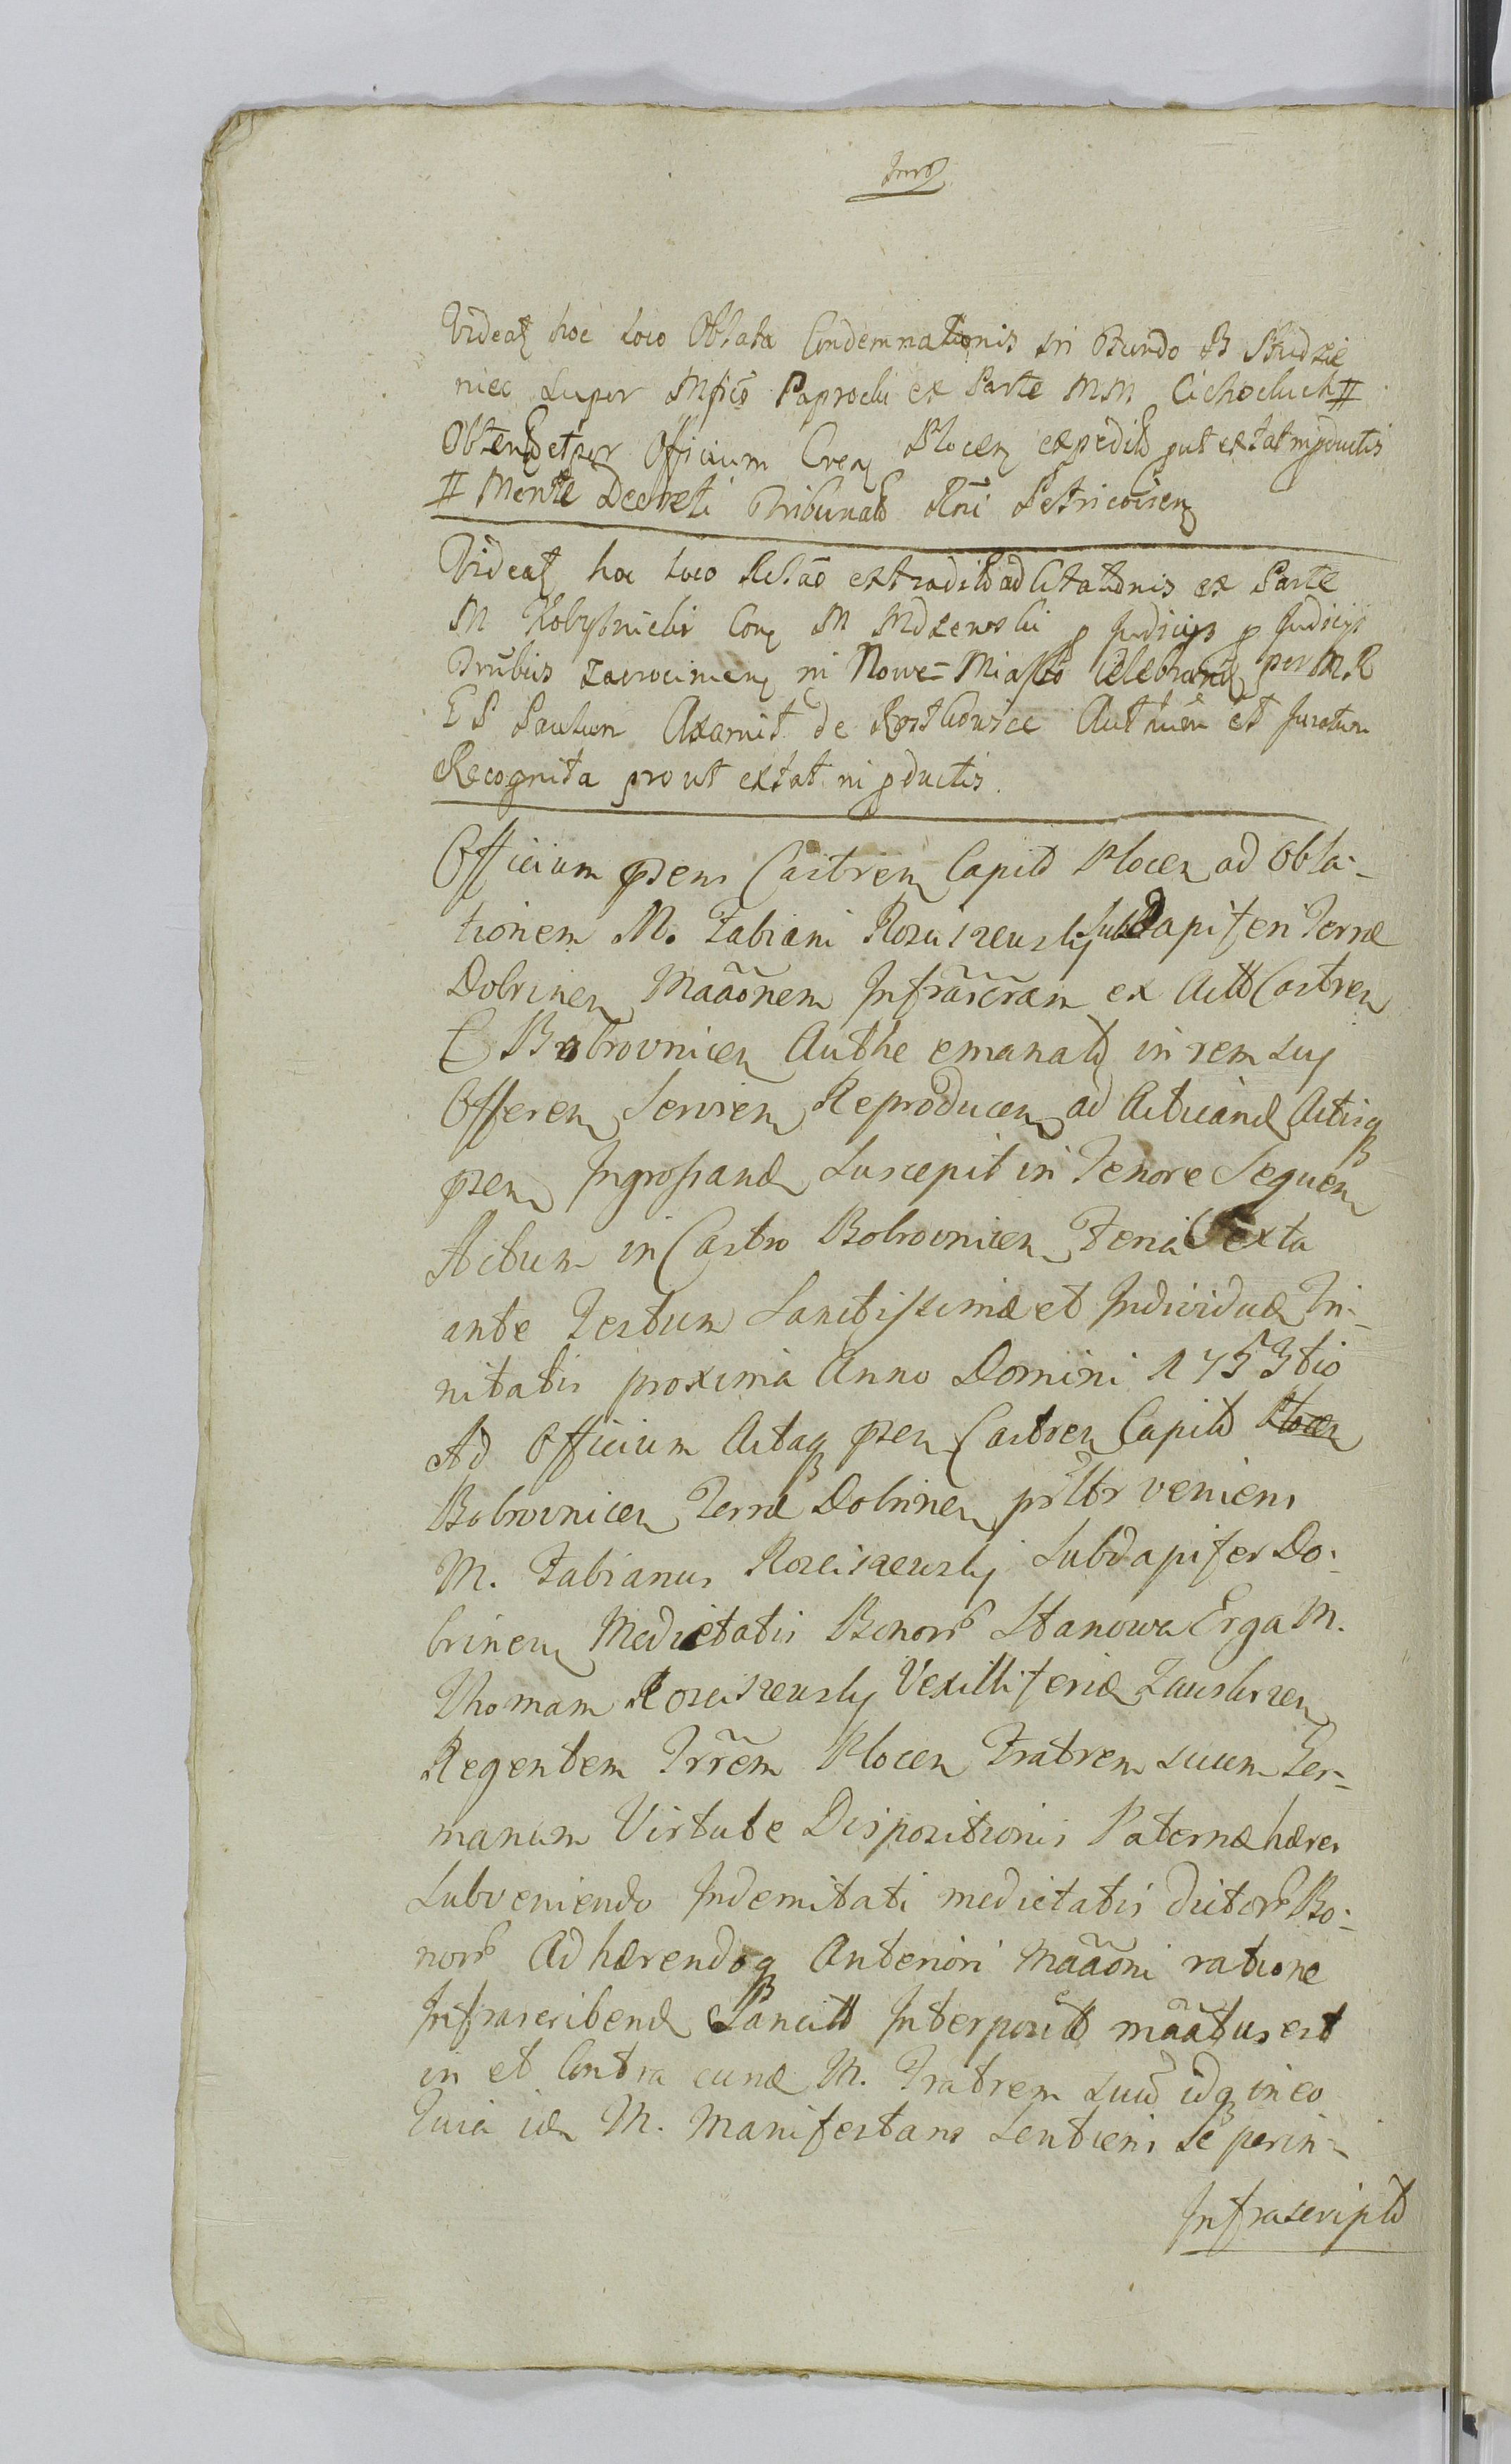 Videatz hoc loco Oblata Condemnationis in Fundo B Budzie
niec super Mficō Paprocki ex Parte MM Cichockich #
Obtent et per Officium Crem Plocen expedit put extat in productis
# Mente Decreti Tribunal Rni Petricovien
Videatz hoc loco Relaō extradit ad Citationis ex Parte
M Kobylnicki Con M Mdzewski p Judicijs p Judicijs
Trrūbus Zacrocimen in Nowe=Miasto Celebran per M. R
E P Paulum Axamit de Rostkowice Authum et Juratum
Recognita prout extat in pductis.
Officium psens Castren Capit Plocen ad Obla-
tionem M. Fabiani Rosciszewsky SubDapiferi Terræ
Dobrinen Maāōnem Infrāscrām ex Actt Castren
C Bobrovnicen Authe emanatt in rem suj
Offeren Servien Reproducen ad Acticand Actisq
psen Ingrossand Suscepit in Tenore Sequen
Actum in Castro Bobrovnicen Feria Sexta
ante Festum Sanctissimæ et Individuæ Tri-
nitatis proxima Anno Domini 1753tio
Ad Officium Actaq psen Castren Capit Plocen
Bobrovnicen Terræ Dobrinen psltr veniens
M. Fabianus Rosciszewsky Subdapifer Do-
brinen Medietatis Bonorb Stanowa Erga M.
Thomam Rosciszewsky Vexilliferid Zawskrzen
Regentem Trrem Plocen Fratrem suum Ger-
manum Virtute Dispositionis Paternæ hæres
Subveniendo Indemitati medietatis dictorb Bo-
norb Adhærendoq Anteriori Maāōni ratione
Infrascribend Sancitt Interposit maātus est
in et Contra eund M. Fratrem suū idq in eo
Quia id M. Manifestans Sentiens se per in-
Infrascript